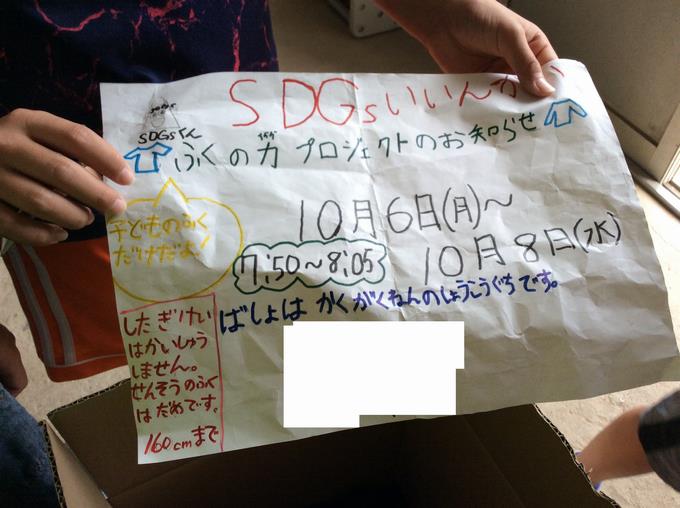 SDGsいいんかい
SDGsくん
ふくの力プロジェクトのお知らせ
子どものふく
だけだよ!
10月6日(月)~
7:50~8:05
10月8日(水)
ばしょはかくがくねんのしょうこうぐちです。
したぎけい
はかいしゅう
しません。
せんそうのふく
はだめです。
160cmまで